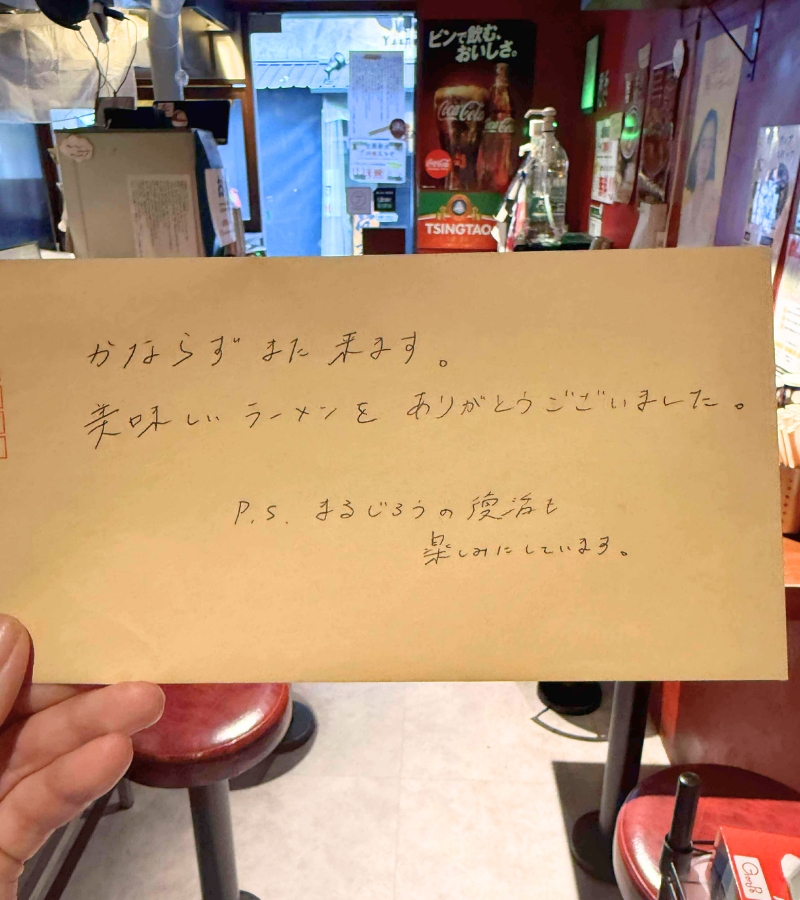 ビンで飲む、
おいしさ。
Coca-Cola
Coca-Cola
TSINGTAO
かならず また 来ます。
美味しい ラーメンを ありがとうございました。
P.S. まるじろうの 復活も
楽しみにしています。